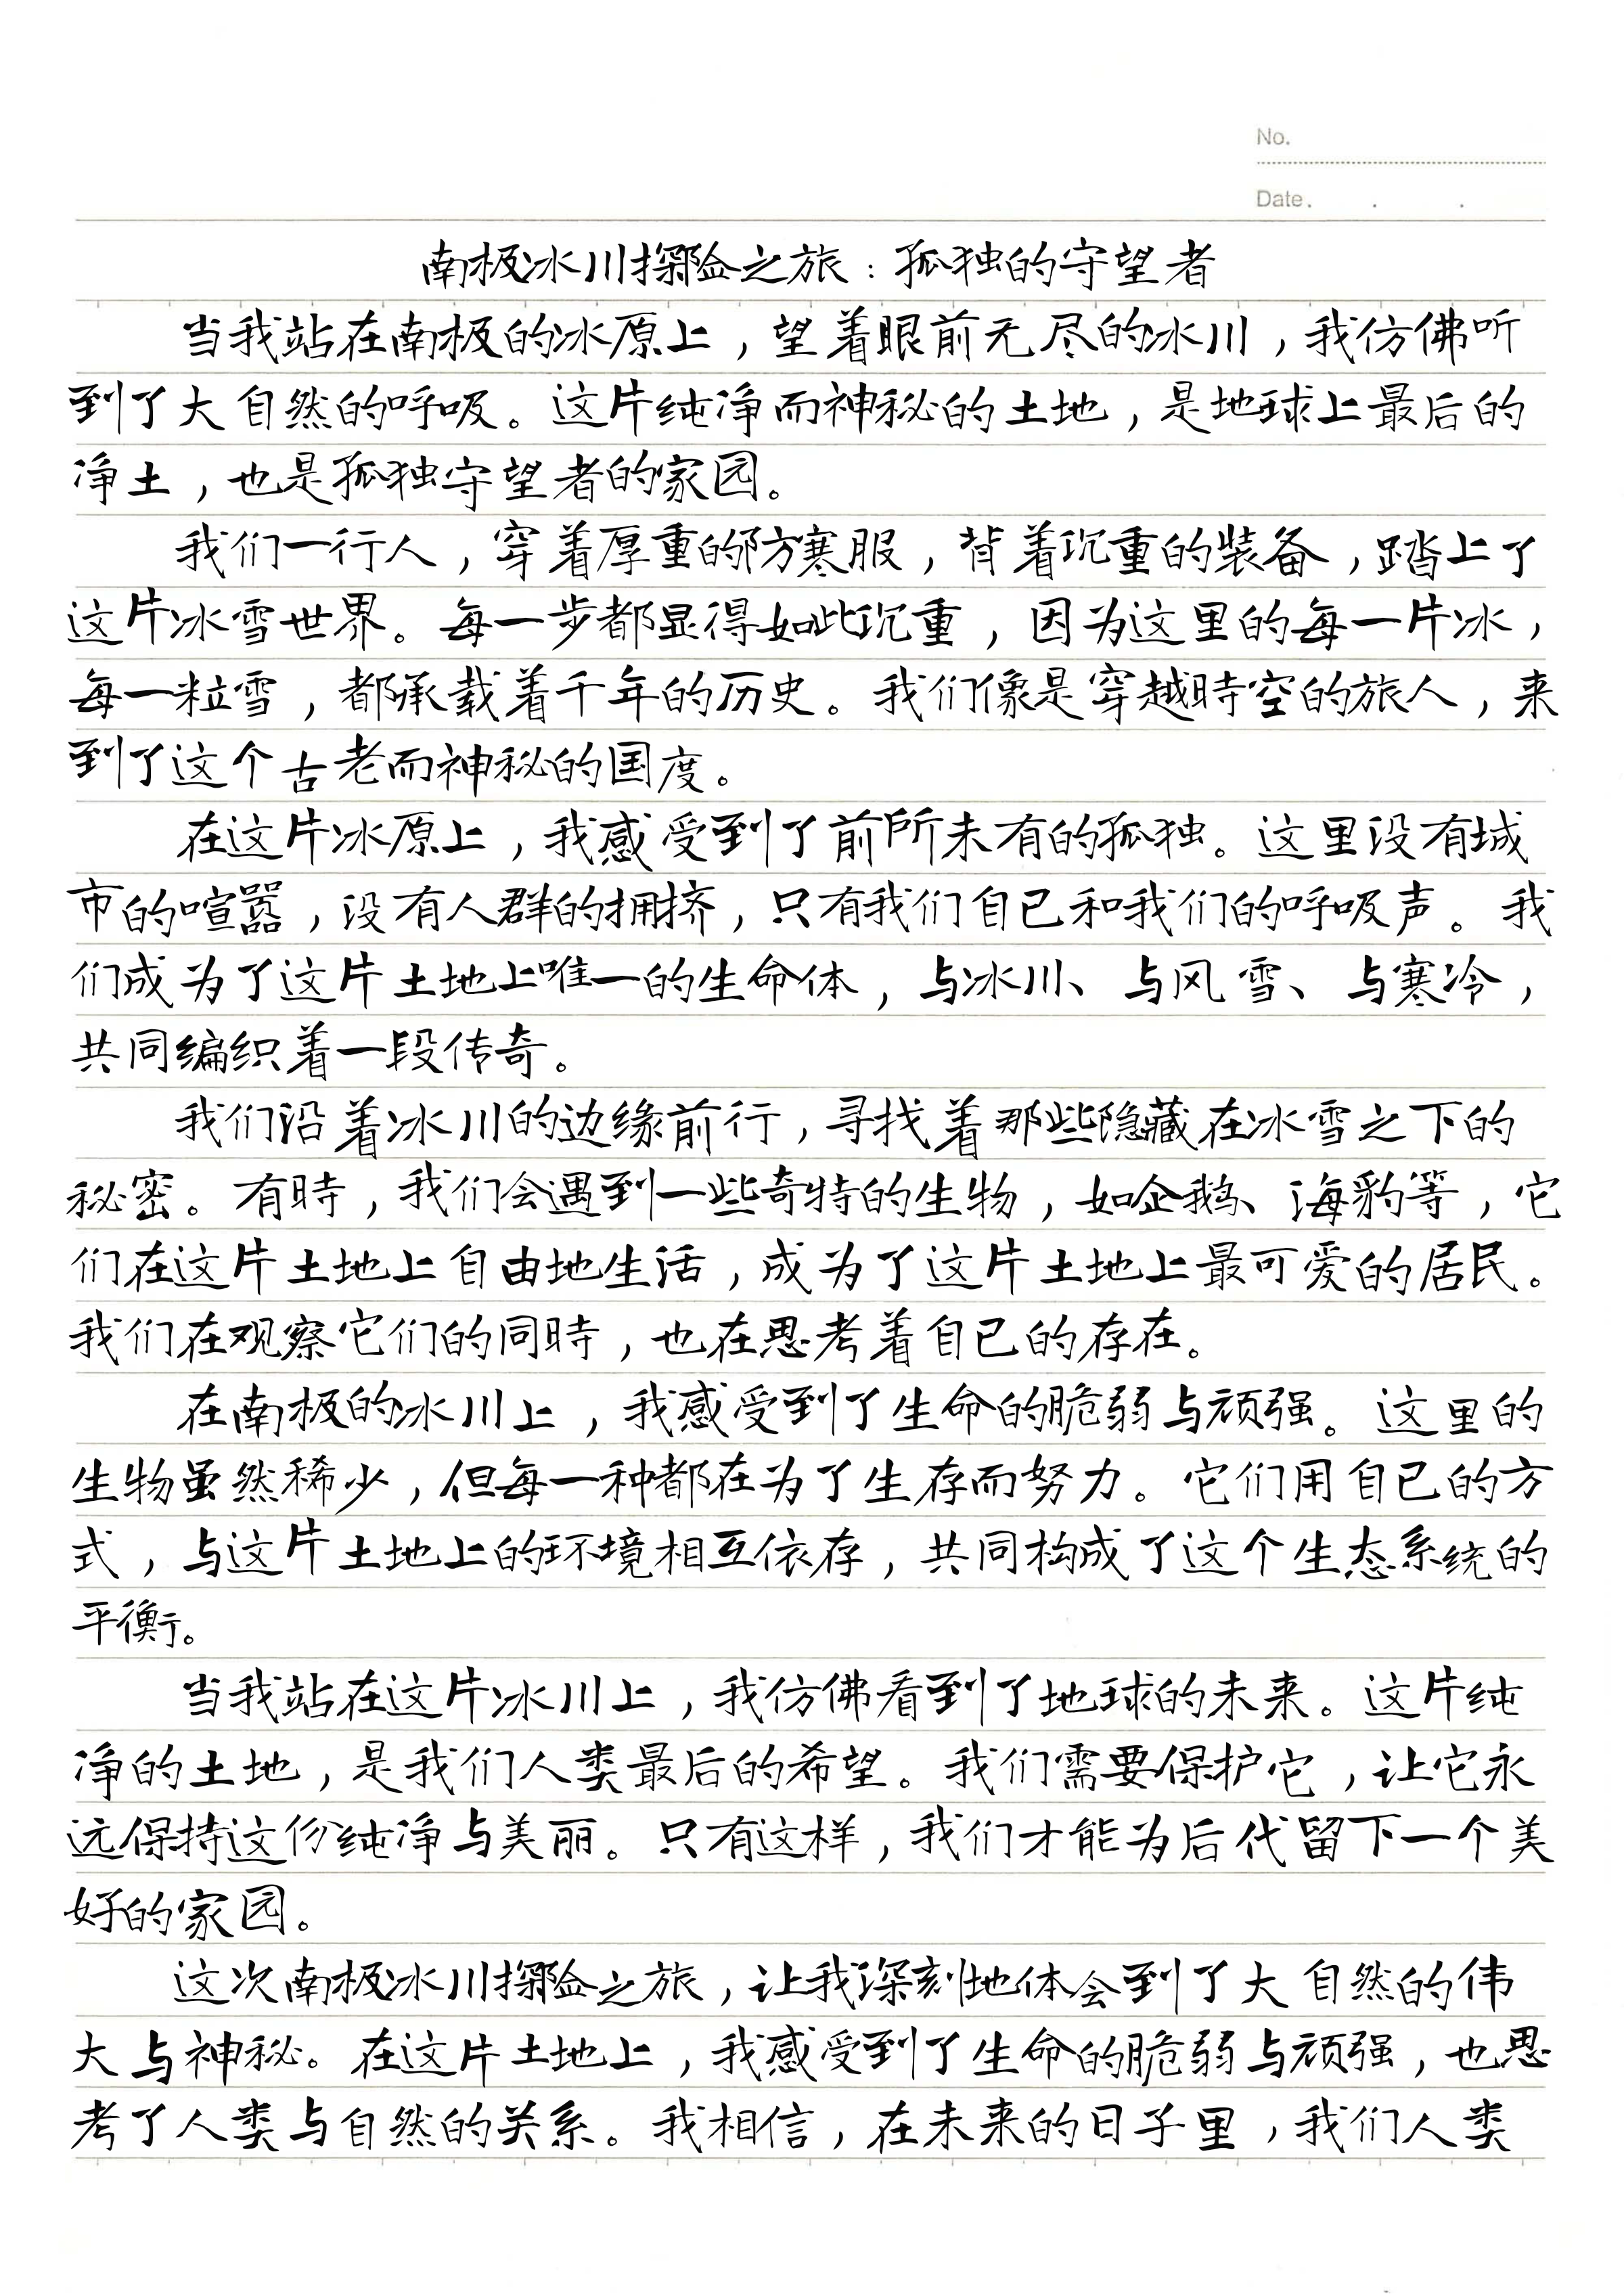 No.
Date.
南极冰川探险之旅：孤独的守望者
当我站在南极的冰原上，望着眼前无尽的冰川，我仿佛听
到了大自然的呼吸。这片纯净而神秘的土地，是地球上最后的
净土，也是孤独守望者的家园。
我们一行人，穿着厚重的防寒服，背着沉重的装备，踏上了
这片冰雪世界。每一步都显得如此沉重，因为这里的每一片冰，
每一粒雪，都承载着千年的历史。我们像是穿越時空的旅人，来
到了这个古老而神秘的国度。
在这片冰原上，我感受到了前所未有的孤独。这里没有城
市的喧嚣，没有人群的拥挤，只有我们自己和我们的呼吸声。我
们成为了这片土地上唯一的生命体，与冰川、与风雪、与寒冷，
共同编织着一段传奇。
我们沿着冰川的边缘前行，寻找着那些隐藏在冰雪之下的
秘密。有時，我们会遇到一些奇特的生物，如企鹅、海豹等，它
们在这片土地上自由地生活，成为了这片土地上最可爱的居民。
我们在观察它们的同時，也在思考着自己的存在。
在南极的冰川上，我感受到了生命的脆弱与顽强。这里的
生物虽然稀少，但每一种都在为了生存而努力。它们用自己的方
式，与这片土地上的环境相互依存，共同构成了这个生态系统的
平衡。
当我站在这片冰川上，我仿佛看到了地球的未来。这片纯
净的土地，是我们人类最后的希望。我们需要保护它，让它永
远保持这份纯净与美丽。只有这样，我们才能为后代留下一个美
好的家园。
这次南极冰川探险之旅，让我深刻地体会到了大自然的伟
大与神秘。在这片土地上，我感受到了生命的脆弱与顽强，也思
考了人类与自然的关系。我相信，在未来的日子里，我们人类